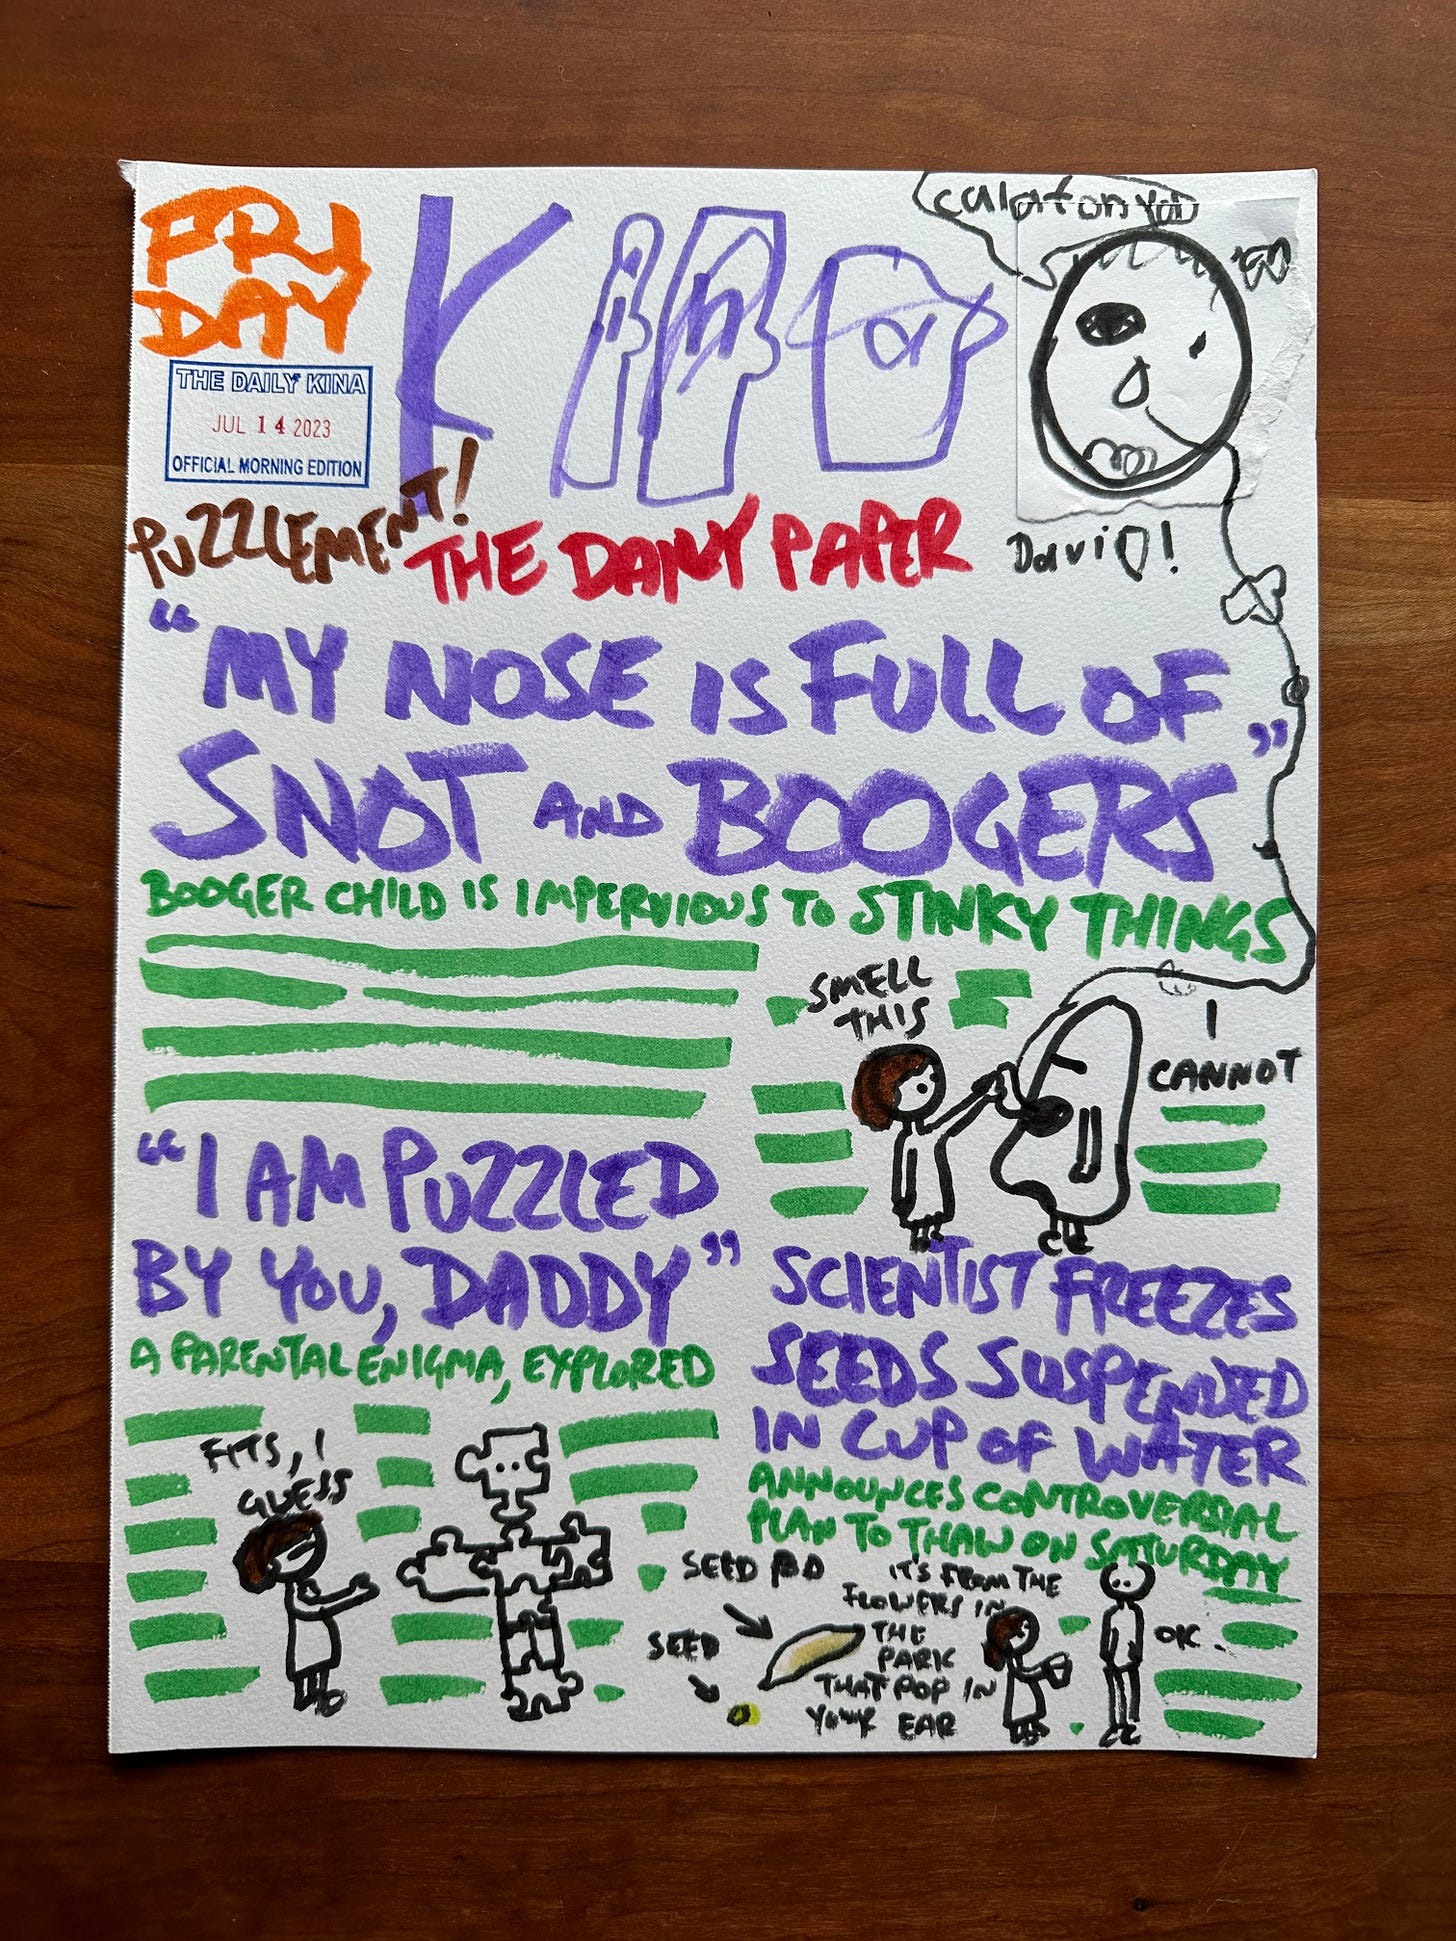 FRI
DAY
THE DAILY KINA
JUL 14 2023
OFFICIAL MORNING EDITION
Kina
PUZZLEMENT!
THE DAILY PAPER
DaviD!
"MY NOSE IS FULL OF
SNOT AND BOOGERS"
BOOGER CHILD IS IMPERVIOUS TO STINKY THINGS
SMELL
THIS
I
CANNOT
"I AM PUZZLED
BY YOU, DADDY"
A PARENTAL ENIGMA, EXPLORED
FITS, I
GUESS
SCIENTIST FREEZES
SEEDS SUSPENDED
IN CUP OF WATER
ANNOUNCES CONTROVERSIAL
PLAN TO THAW ON SATURDAY
SEED POD
SEED
IT'S FROM THE
FLOWERS IN
THE
PARK
THAT POP IN
YOUR EAR
OK.